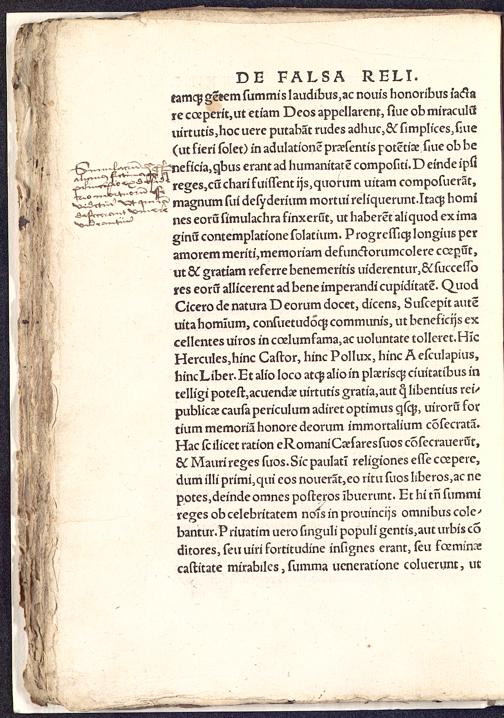 DE FALSA RELI.
tamq; gētem summis laudibus, ac nouis honoribus iacta
re cœperit, ut etiam Deos appellarent, siue ob miraculū
uirtutis, hoc uere putabāt rudes adhuc, & simplices, siue
(ut fieri solet) in adulationē præsentis potētiæ, siue ob be
neficia, qbus erant ad humanitatē compositi. Deinde ipsi
reges, cū chari fuissent ijs, quorum uitam composuerāt,
magnum sui desyderium mortui reliquerunt. Itaq; homi
nes eorū simulachra finxerūt, ut haberēt aliquod ex ima
ginū contemplatione solatium. Progressiq; longius per
amorem meriti, memoriam defunctorum colere cœpūt,
ut & gratiam referre benemeritis uiderentur, & successo
res eorū allicerent ad bene imperandi cupiditatē. Quod
Cicero de natura Deorum docet, dicens, Suscepit autē
uita homīum, consuetudōq; communis, ut beneficijs ex
cellentes uiros in cœlum fama, ac uoluntate tolleret. Hīc
Hercules, hinc Castor, hinc Pollux, hinc Aesculapius,
hinc Liber. Et alio loco atq; alio in plærisq; ciuitatibus in
telligi potest, acuendæ uirtutis gratia, aut q̄ libentius rei-
publicæ causa periculum adiret optimus qsq;, uirorū for
tium memoriā honore deorum immortalium cōsecratā.
Hac scilicet ratione Romani Cæsares suos cōsecrauerūt,
& Mauri reges suos. Sic paulatī religiones esse cœpere,
dum illi primi, qui eos nouerāt, eo ritu suos liberos, ac ne
potes, deinde omnes posteros ībuerunt. Et hi tn̄ summi
reges ob celebritatem noīs in prouincijs omnibus cole-
bantur. Priuatim uero singuli populi gentis, aut urbis cō
ditores, seu uiri fortitudine insignes erant, seu fœminæ
castitate mirabiles, summa ueneratione coluerunt, ut